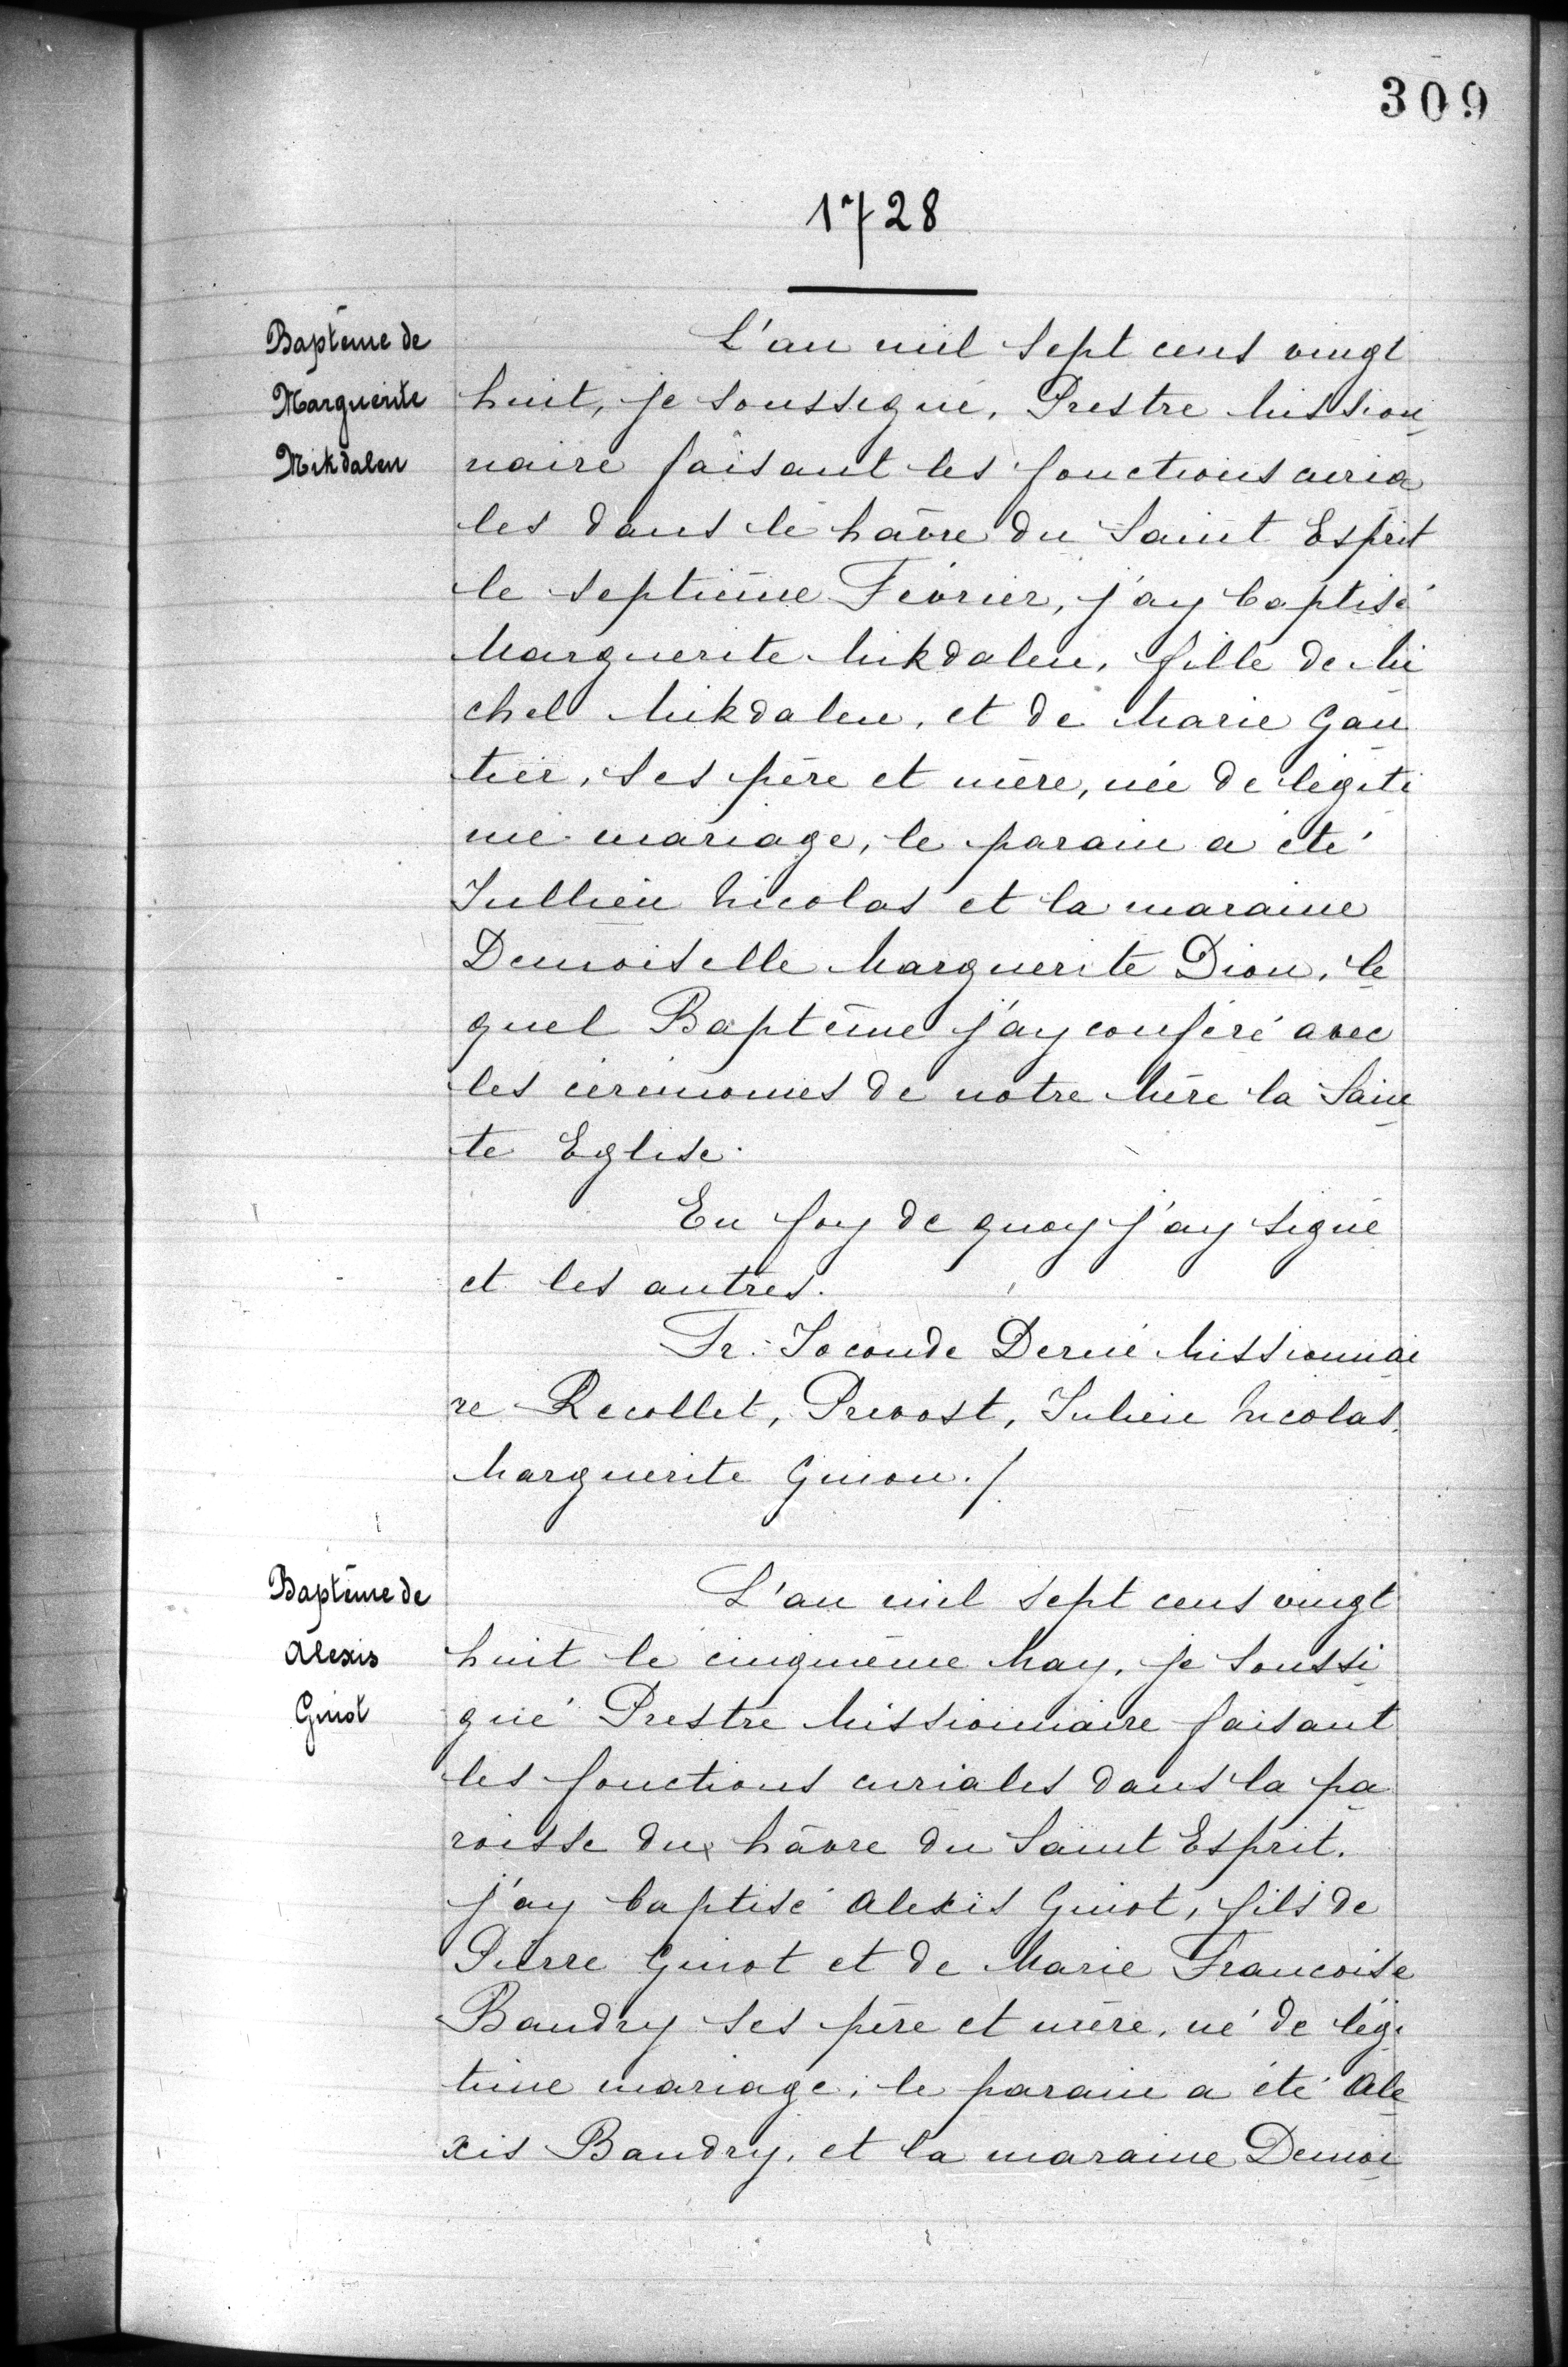 309
1728
Baptême de
Marguerite
Mikdalen
L'an mil sept cens vingt
huit, je soussigné, Prestre Mission
naire faisant les fonctions curia
les dans le hâvre du Saint Esprit
le septième Février, j'ay baptisé
Marguerite Mikdalen, fille de Mi
chel Mikdalen, et de Marie Gau
tier, ses père et mère, née de légiti
me mariage, le parain a été
Jullien Nicolas et la maraine
Demoiselle Marguerite Dion, le
quel Baptême j'ay conféré avec
les cérémonies de notre Mère la Sain
te Eglise.
En foy de quoy j'ay signé
et les autres.
Fr. Joconde Derné Missionnai
re Recollet, Prevost, Julien Nicolas,
Marguerite Guion./.
Baptême de
Alexis
Guiot
L'an mil sept cens vingt
huit le cinquième May, je soussi
gné Prestre Missionnaire faisant
les fonctions curiales dans la pa
roisse du hâvre du Saint Esprit.
j'ay baptisé Alexis Guiot, fils de
Pierre Guiot et de Marie Francoise
Baudry ses père et mère, né de légi
time mariage, le parain a été Ale
xis Baudry, et la maraine Demoi